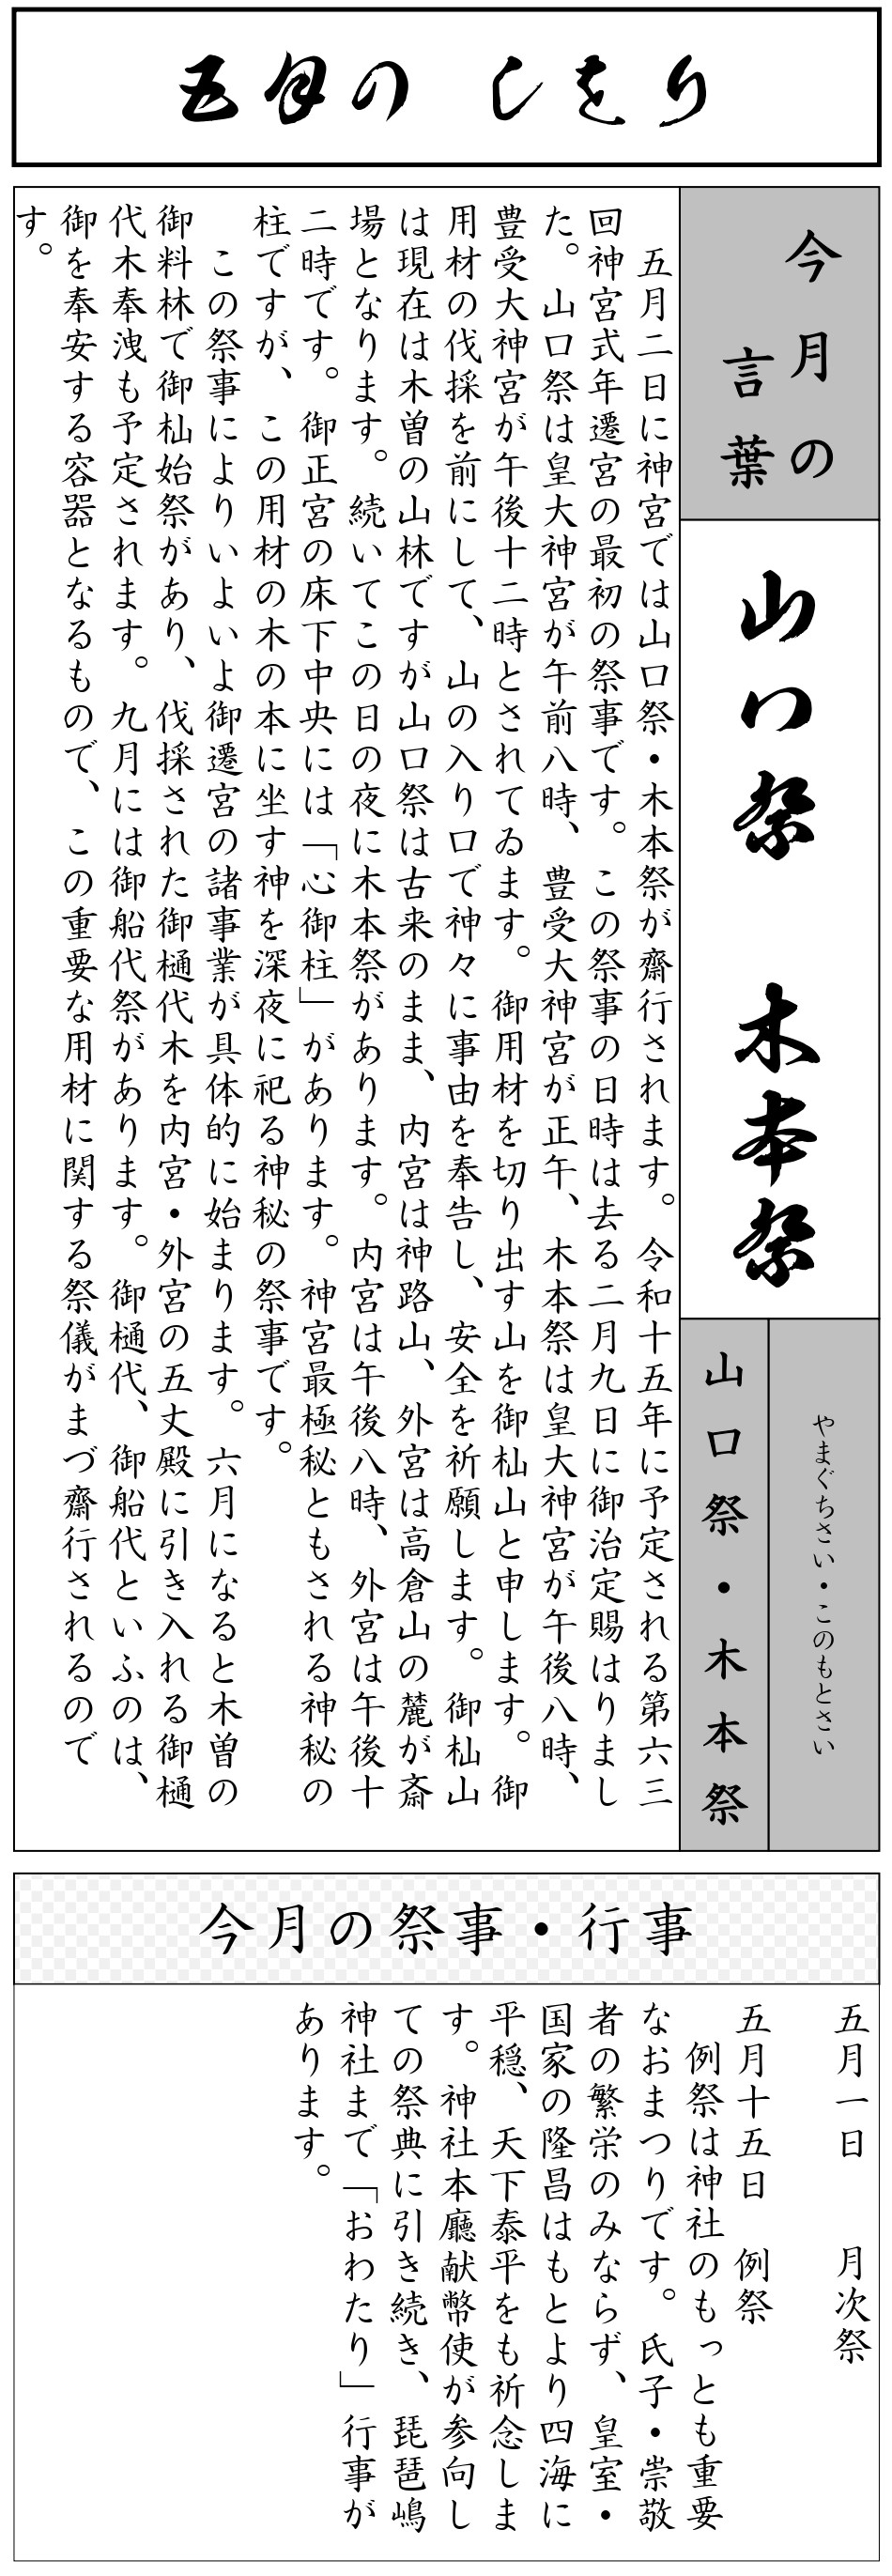 五月の しをり
今月の
言葉
山口祭 木本祭
やまぐちさい・このもとさい
山口祭・木本祭
五月二日に神宮では山口祭・木本祭が齋行されます。令和十五年に予定される第六三
回神宮式年遷宮の最初の祭事です。この祭事の日時は去る二月九日に御治定賜はりまし
た。山口祭は皇大神宮が午前八時、豊受大神宮が正午、木本祭は皇大神宮が午後八時、
豊受大神宮が午後十二時とされてゐます。御用材を切り出す山を御杣山と申します。御
用材の伐採を前にして、山の入り口で神々に事由を奉告し、安全を祈願します。御杣山
は現在は木曽の山林ですが山口祭は古来のまま、内宮は神路山、外宮は高倉山の麓が斎
場となります。続いてこの日の夜に木本祭があります。内宮は午後八時、外宮は午後十
二時です。御正宮の床下中央には「心御柱」があります。神宮最極秘ともされる神秘の
柱ですが、この用材の木の本に坐す神を深夜に祀る神秘の祭事です。
この祭事によりいよいよ御遷宮の諸事業が具体的に始まります。六月になると木曽の
御料林で御杣始祭があり、伐採された御樋代木を内宮・外宮の五丈殿に引き入れる御樋
代木奉洩も予定されます。九月には御船代祭があります。御樋代、御船代といふのは、
御を奉安する容器となるもので、この重要な用材に関する祭儀がまづ齋行されるので
す。
今月の祭事・行事
五月一日 月次祭
五月十五日 例祭
例祭は神社のもっとも重要
なおまつりです。氏子・崇敬
者の繁栄のみならず、皇室・
国家の隆昌はもとより四海に
平穏、天下泰平をも祈念しま
す。神社本廳献幣使が参向し
ての祭典に引き続き、琵琶嶋
神社まで「おわたり」行事が
あります。